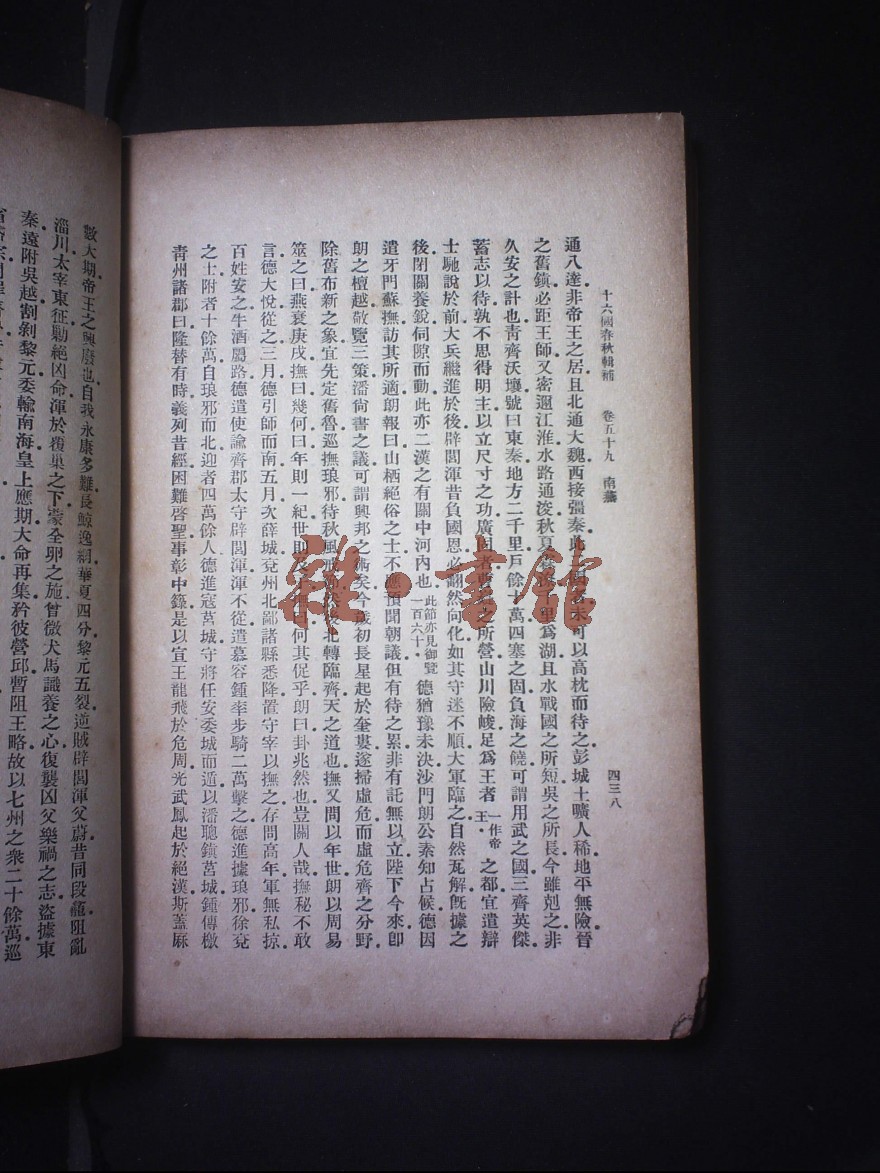 十六國春秋輯補　卷五十九　南燕　四三八
通八達非帝王之居且北通大魏西接彊秦此二國者未可以高枕而待之彭城土曠人稀地平無險晉
之舊鎮必距王師又密邇江淮水路通浚秋夏霖潦千里爲湖且水戰國之所短吳之所長今雖剋之非
久安之計也青齊沃壤號曰東秦地方二千里戶餘十萬四塞之固負海之饒可謂用武之國三齊英傑
蓄志以待孰不思得明主以立尺寸之功廣固者曹嶷之所營山川險峻足爲王者一作帝王之都宜遣辯
士馳說於前大兵繼進於後辟閭渾昔負國恩必翻然向化如其守迷不順大軍臨之自然瓦解旣據之
後閉關養銳伺隙而動此亦二漢之有關中河內也此節亦見御覽一百六十德猶豫未決沙門朗公素知占候德因
遣牙門蘇撫訪其所適朗報曰山栖絕俗之士不應預聞朝議但有待之累非有託無以立陛下今來卽
朗之檀越敬覽三策潘尙書之議可謂興邦之術矣今歲初長星起於奎婁遂掃虛危而虛危齊之分野
除舊布新之象宜先定舊魯巡撫琅邪待秋風戒節然後北轉臨齊天之道也撫又問以年世朗以周易
筮之曰燕衰庚戌撫曰幾何曰年則一紀世則及子撫曰何其促乎朗曰卦兆然也豈關人哉撫秘不敢
言德大悅從之三月德引師而南五月次薛城兗州北鄙諸縣悉降置守宰以撫之存問高年軍無私掠
百姓安之牛酒屬路德遣使諭齊郡太守辟閭渾渾不從遣慕容鍾率步騎二萬擊之德進據琅邪徐兗
之士附者十餘萬自琅邪而北迎者四萬餘人德進寇莒城守將任安委城而遁以潘聰鎮莒城鍾傳檄
青州諸郡曰隆替有時義列昔經困難啓聖事彰中籙是以宣王龍飛於危周光武鳳起於絕漢斯蓋麻
數大期帝王之興廢也自我永康多難長鯨逸網華夏四分黎元五裂逆賊辟閭渾父蔚昔同段龕阻亂
淄川太宰東征勦絕凶命渾於覆巢之下蒙全卵之施曾微犬馬識養之心復襲凶父樂禍之志盜據東
秦遠附吳越割剝黎元委輸南海皇上應期大命再集矜彼營邱暫阻王略故以七州之衆二十餘萬巡
雜·書館